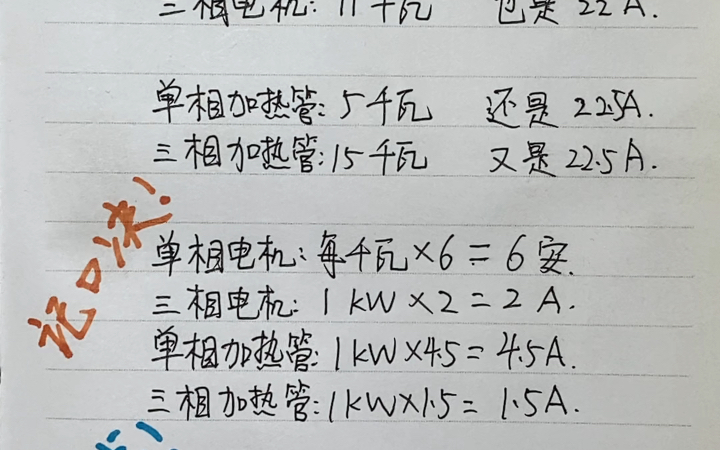 三相电机: 11千瓦 也是 22A.
单相加热管: 5千瓦 还是 22.5A.
三相加热管: 15千瓦 又是 22.5A.
记口诀!
单相电机: 每千瓦×6=6安.
三相电机: 1KW×2=2A.
单相加热管: 1KW×4.5=4.5A.
三相加热管: 1KW×1.5=1.5A.